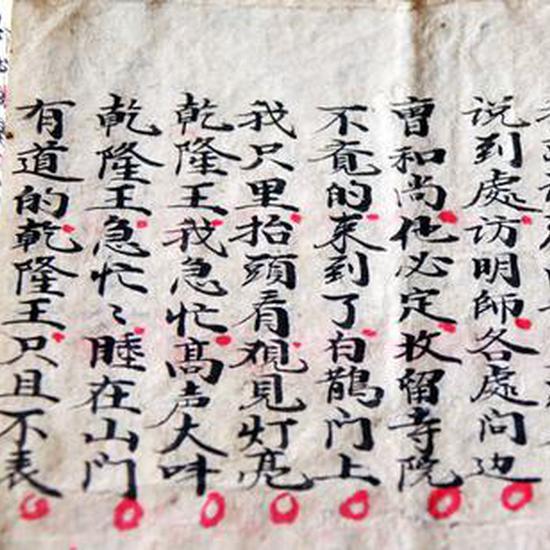 说到處访明師各處问边
曹和尚他必定收留寺院
不竟的来到了白鵲门上
我只里抬頭看观見灯亮
乾隆王我急忙髙声大呌
乾隆王急忙〻睡在山门
有道的乾隆王只且不表